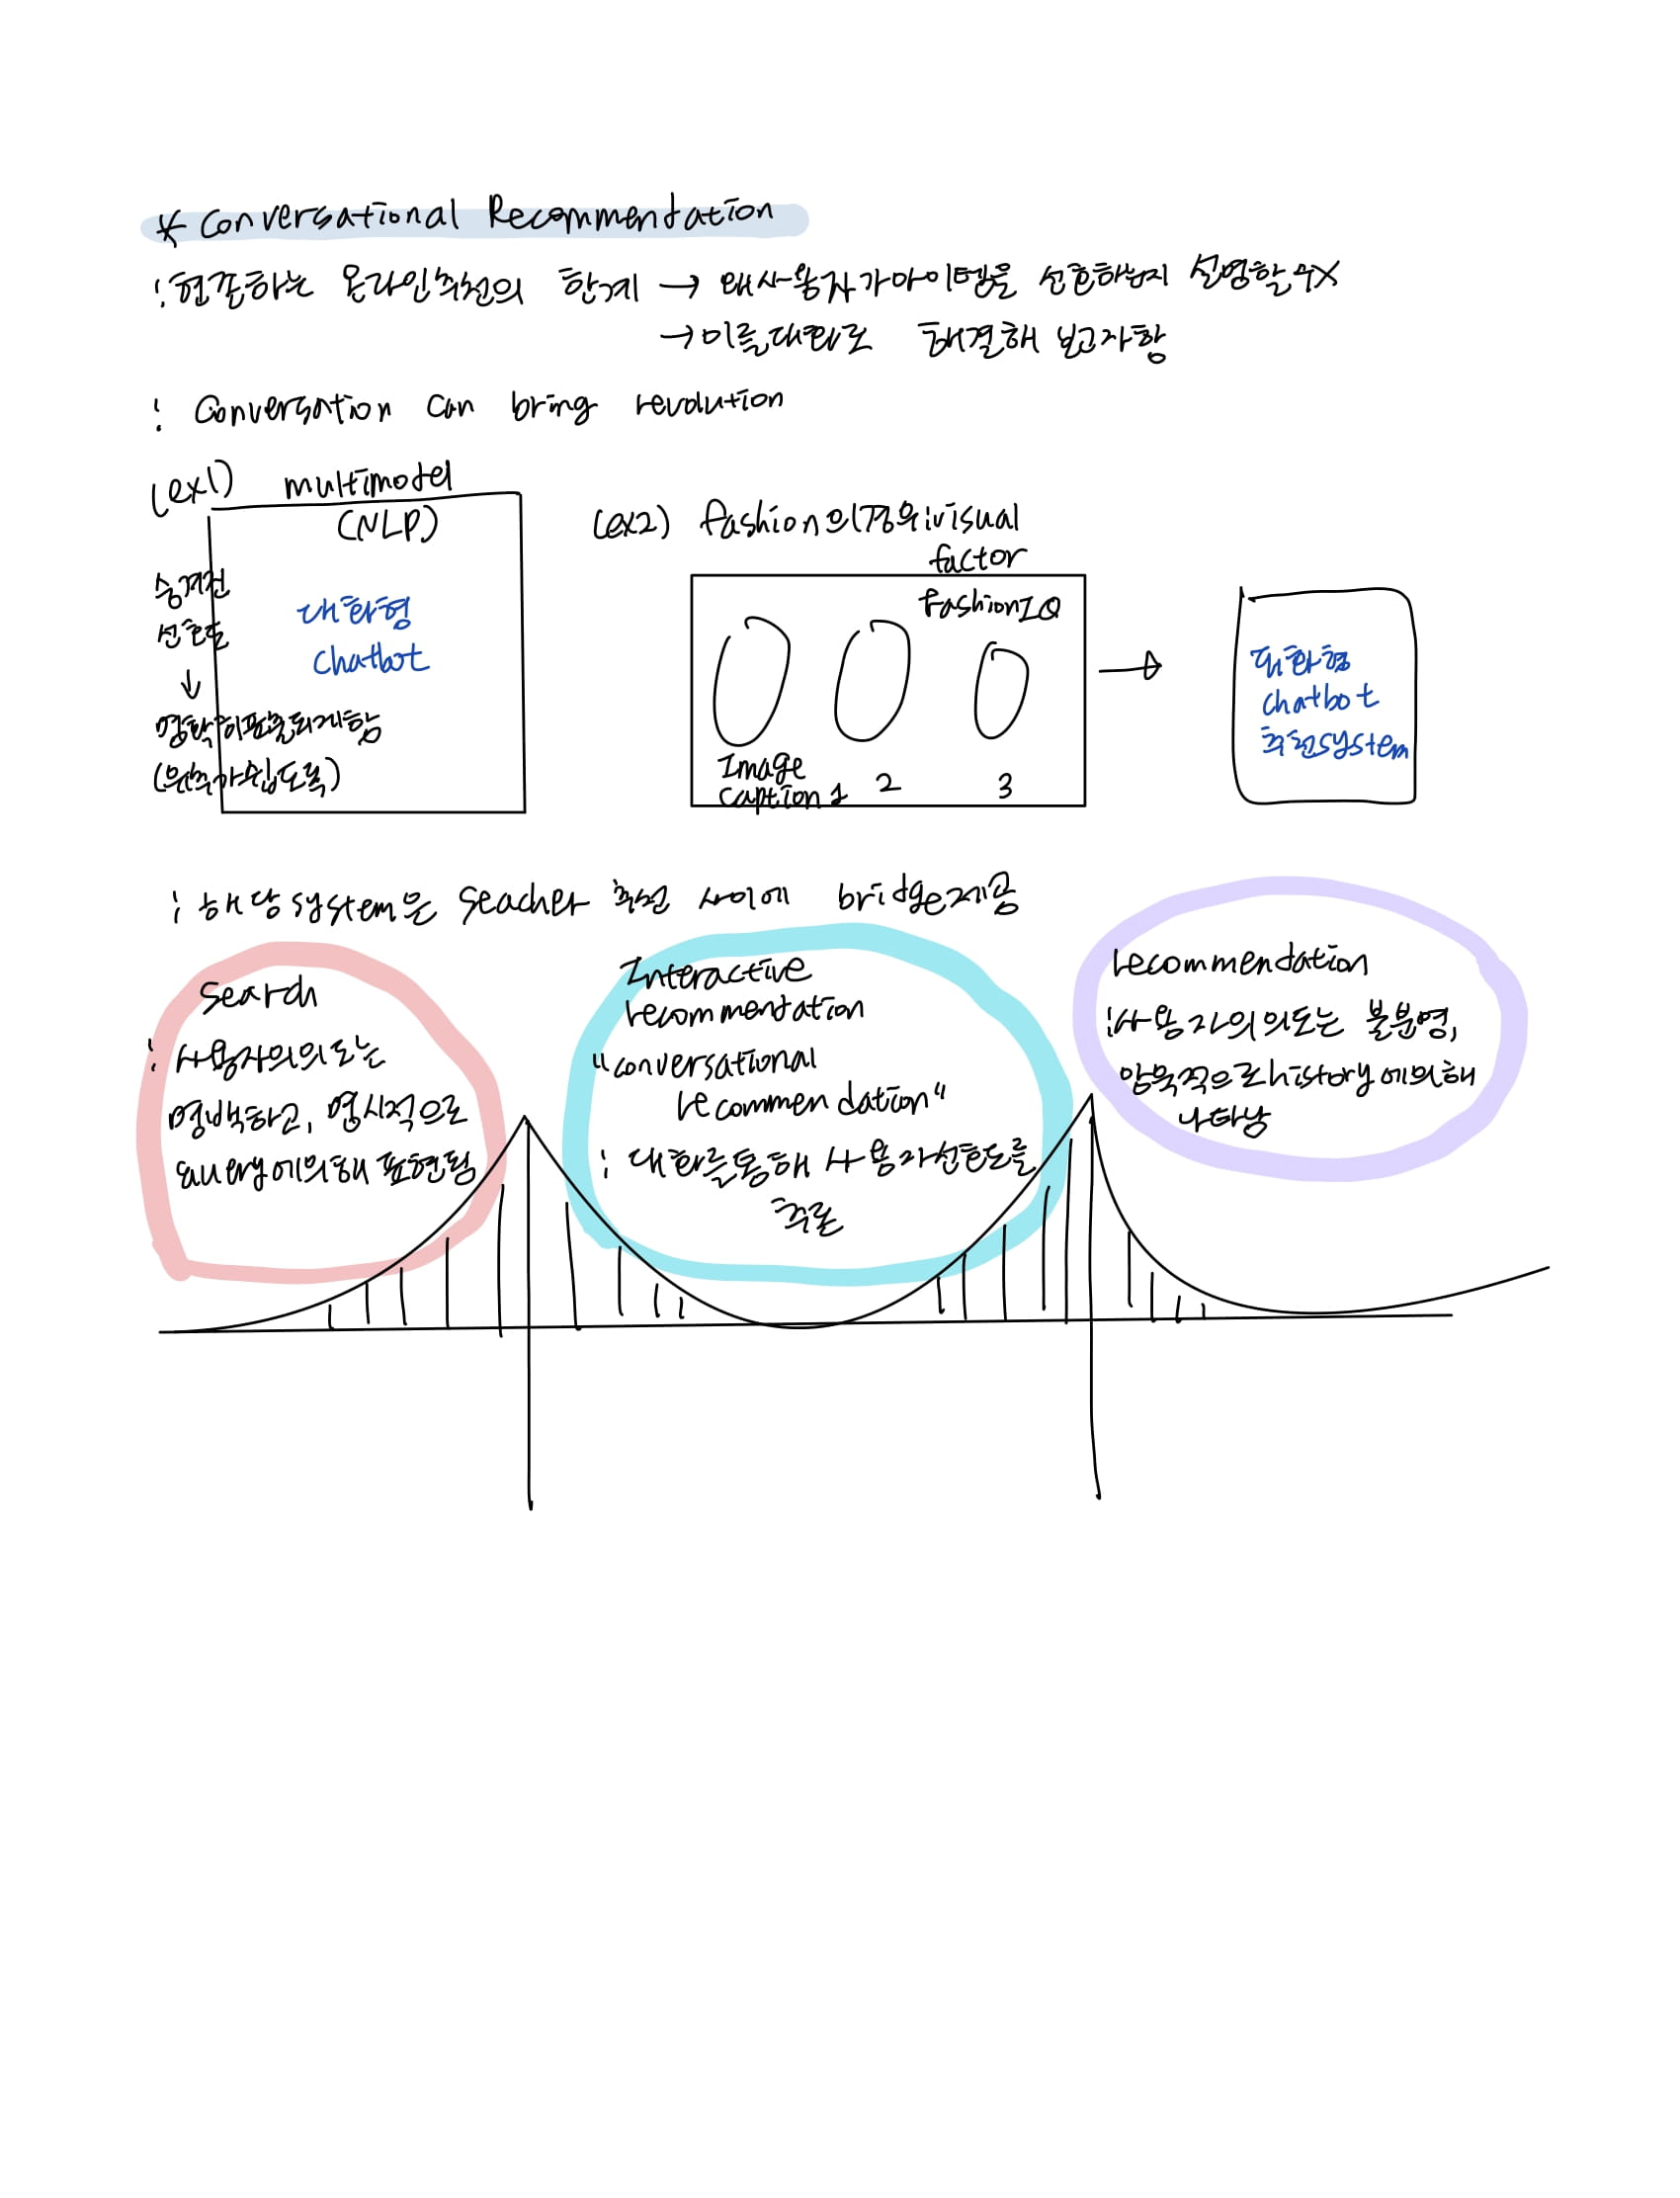 * Conversational Recommendation
: 현존하는 온라인추천의 한계 → 왜사용자가아이템을 선호하는지 설명할수X
→이를대화로 해결해보고자함
: Conversation can bring revolution
(ex1) multimodel
(NLP)
숨겨진
선호를
↓
명확히표출되게함
대화형
chatbot
(ex2) fashion의경우:visual
factor
FashionIQ
Image
caption1 2 3
→
대화형
chatbot
추천system
: 해당system은 seacher 추천 사이에 bridge제공
Search
: 사용자의의도는
명백하고, 명시적으로
query에의해 표현됨
Interactive
recommendation
"conversational
recommendation"
: 대화를통해 사용자선호도를
추론
recommendation
:사용자의의도는 불분명,
암묵적으로history에의해
나타남